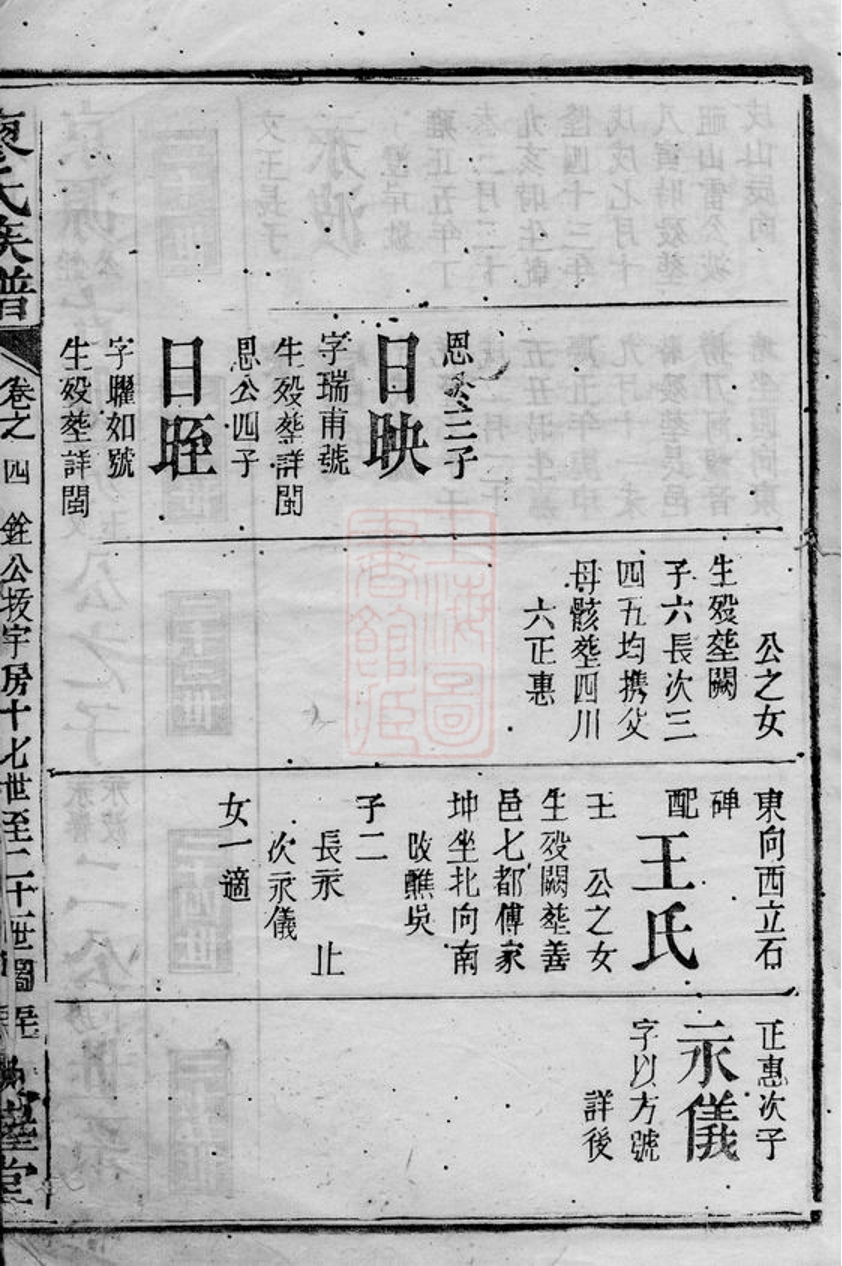 恩公三子
日映
字瑞甫號
生殁塟詳閩
恩公四子
日晊
字曜如號
生殁塟詳閩
公之女
生殁塟闕
子六長次三
四五均携父
母骸塟四川
六正惠
東向西立石
碑
配王氏
王 公之女
生殁闕塟善
邑七都傅家
坤坐北向南
改醮吳
子二
長永止
次永儀
女一適
正惠次子
永儀
字以方號
詳後
廖氏族譜
卷之四 銓公拔宇房十七世至二十一世圖
堂
上海圖書館藏